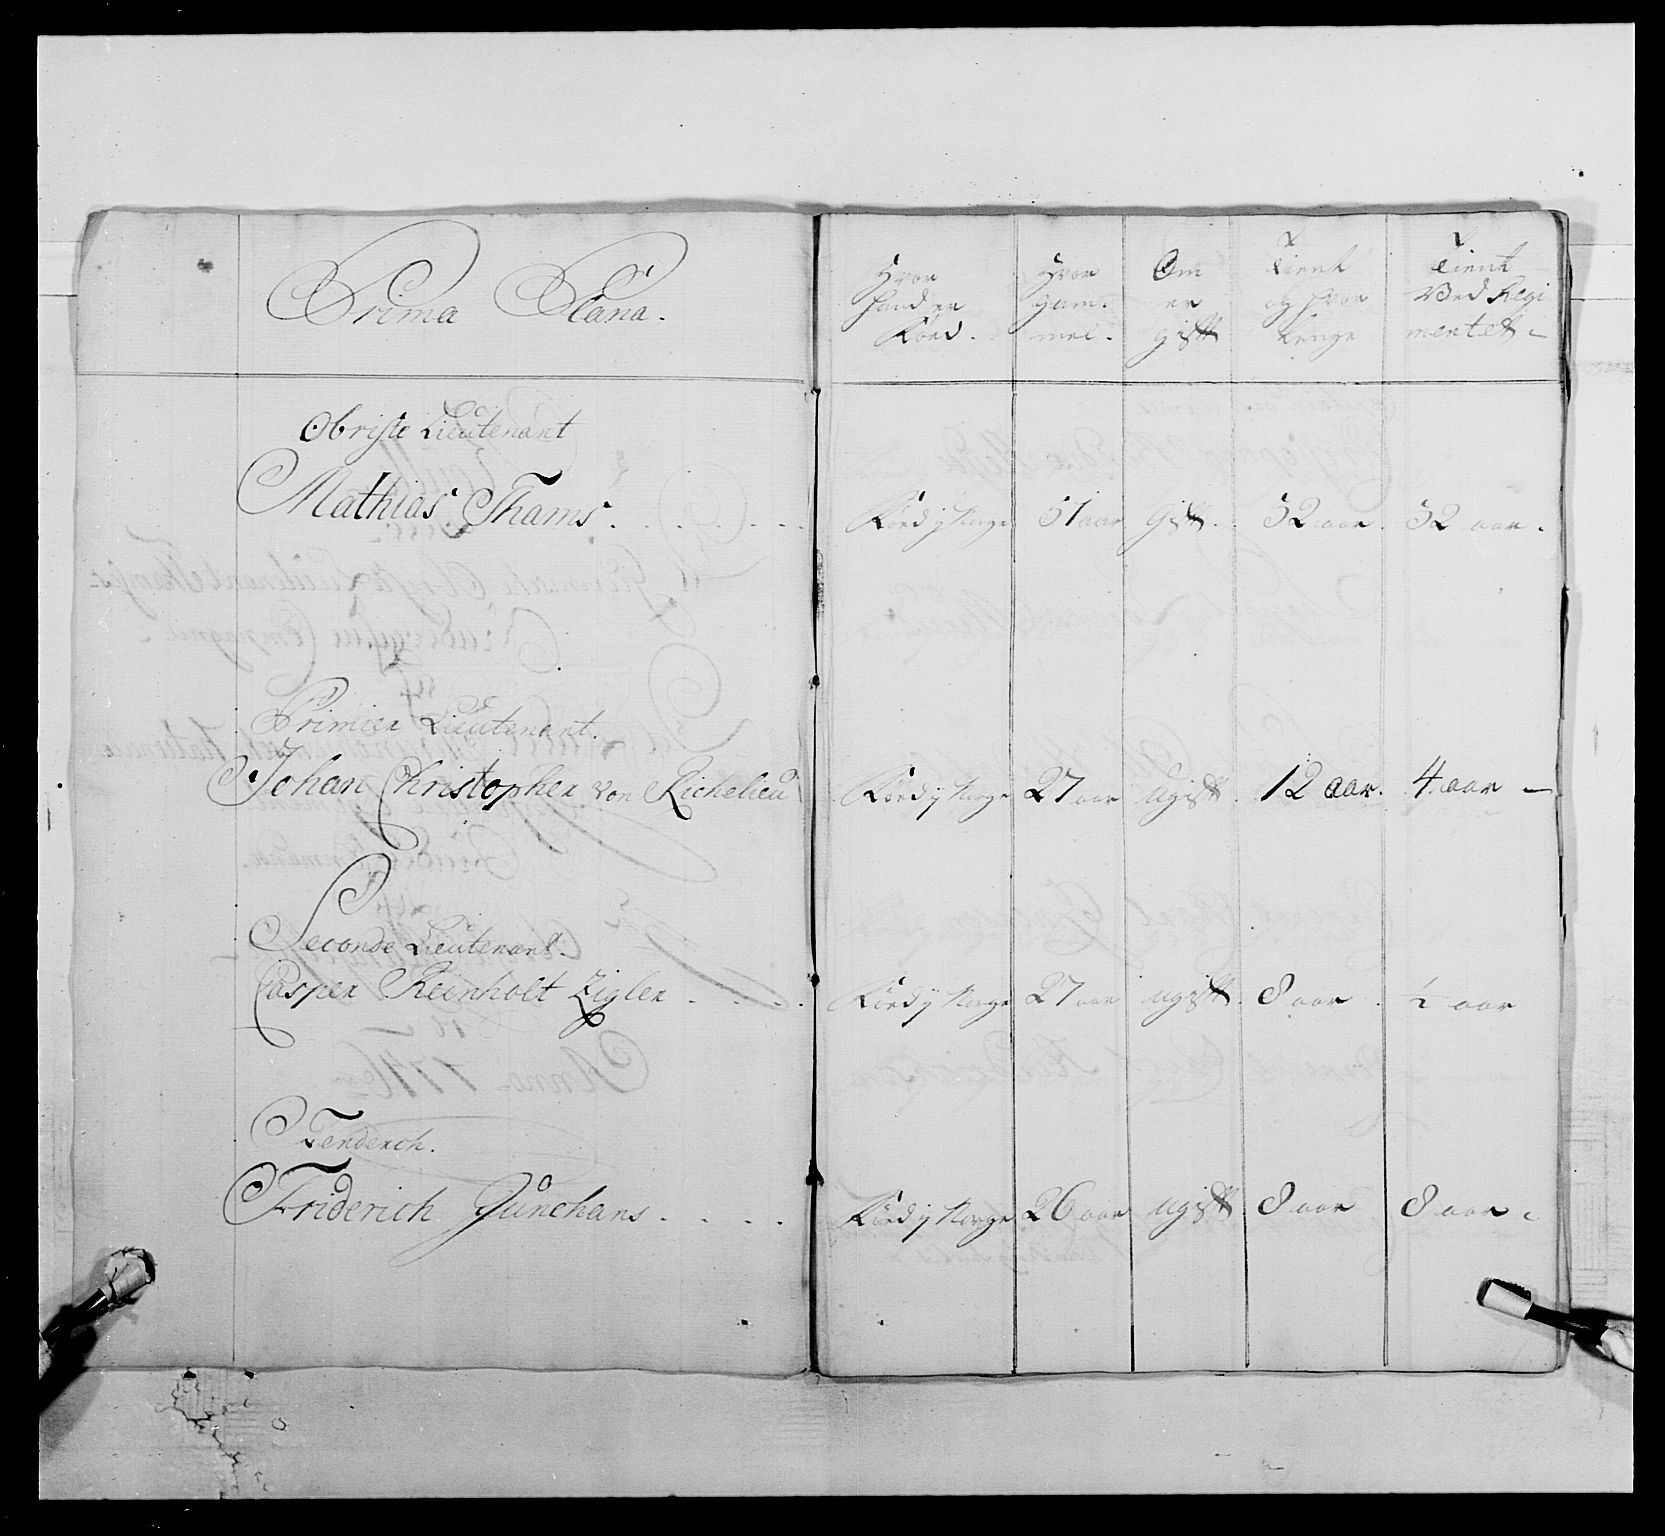 Prima Plana.
Hvor
hand er
Föed.
Hvor
gam-
mel.
Om
er
gift
Tient
og hvor
lenge
Tient
Ved Regi
mentet
Obriste Lieutenant
Mathias Thams. Föed y Norge 51 aar gift. 32 aar. 32 aar.
Primier Lieutenant.
Johan Christopher von Richelieu Föed y Norge 27 aar ugift. 12 aar. 4 aar
Seconde Lieutenant.
Casper Reinholt Zigler Föed y Norge 27 aar ugift. 8 aar. aar
Fenderch.
Friderich Jünchans Föed y Norge 26 aar ugift. 8 aar 8 aar.